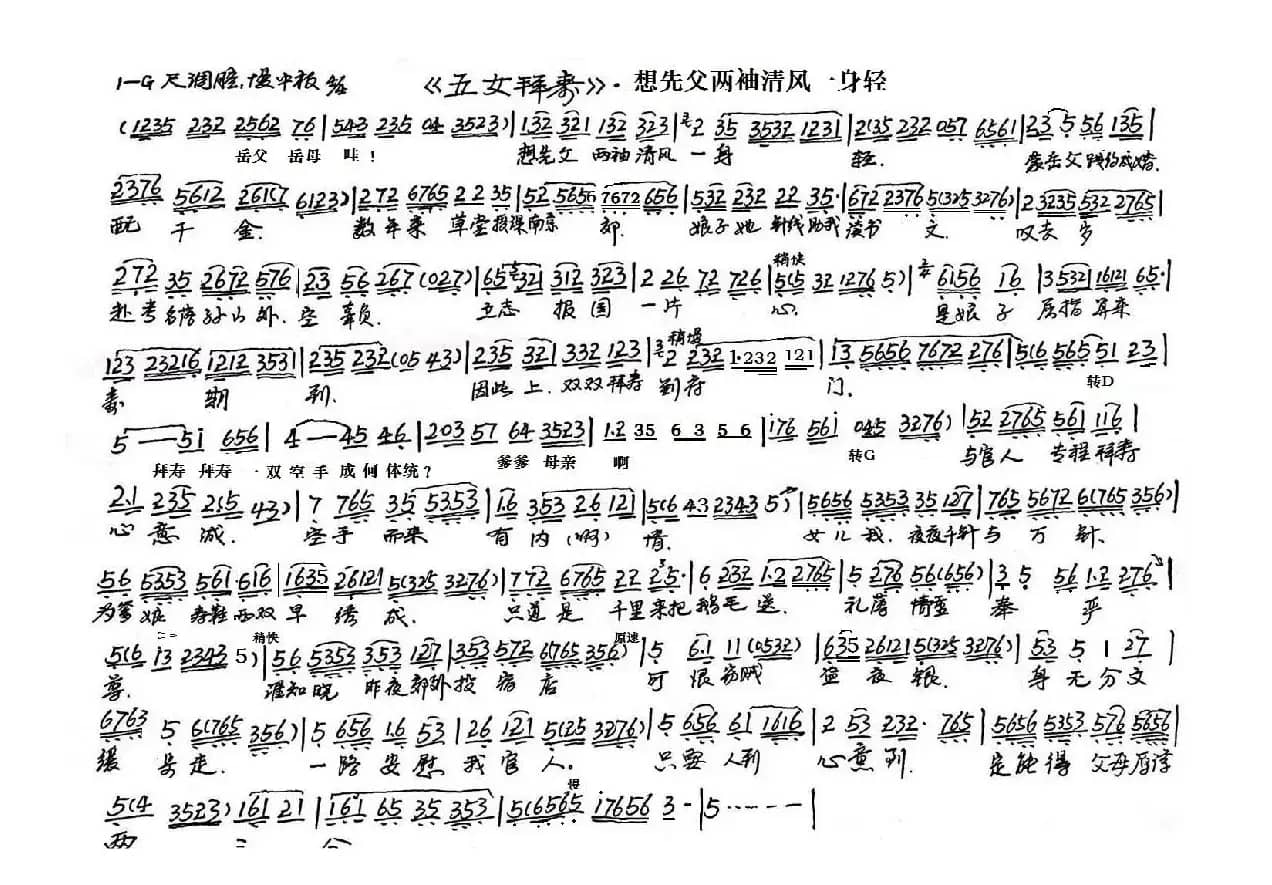 1—G 尺调腔,慢中板 《五女拜寿》· 想先父两袖清风一身轻
(1235 232 2562 76 | 543 235 04 3523) | 132 321 132 323 | 2 35 3532 1231 | 2(35 232 057 6561 | 23 5 56 135 |
岳父 岳母 哇! 想先父 两袖清风 一身 轻. 蒙岳父践约成婚.
2376 5612 2617 6123) | 272 6765 22 35 | 52 5656 7672 656 | 532 232 22 35· | 672 2376 5(325 3276) | 2 3235 532 2765 |
配 千 金. 数年来 草堂 部. 娘子她 针线助我 读书 文. 叹去岁
272 35 2672 576 | 23 56 267 (027) | 65 321 312 323 | 2 26 72 726 | 5(5 32 1276 5) | 6156 16 | 3 532 16121 65· |
稍快
赴考名榜孙山外. 空辜负. 立志 报国 一片 心. 是娘子 屈指算来
123 23216 1212 3531 | 235 232 (05 43) | 235 321 332 123 | 2 232 1·232 121 | 13 5656 7672 276 | 5(6 565 51 23 |
稍慢
寿 期 到. 因此上. 双双拜寿 到府 门. 转D
5——51 656 | 4——45 46 | 203 57 64 3523 | 1·2 35 6 3 5 6 | 176 561 045 3276) | 52 2765 561 116 |
拜寿 拜寿 一双空手成何体统? 爹爹 母亲 啊 转G 与官人 专程拜寿
2·1 235 2(5 43) | 7 765 35 5353 | 1·6 353 26 121 | 5(6 43 2343 5) | 5656 5353 35 127 | 765 5672 6(765 356) |
心意诚. 空手而来 有内(啊) 情. 女儿我. 夜夜千针与 万 针.
56 5353 561 616 | 1635 26121 5(325 3276) | 772 6765 22 25· | 6 232 1·2 2765 | 5 276 56(656) | 3 5 56 1·2 276 |
为爹娘 寿鞋两双早绣成. 只道是 千里来把鹅毛送. 礼薄情重 奉 严
5(6 13 2343 5) | 56 5353 353 127 | 353 572 6(765 356) | 5 6·1 11 (0532) | 635 26121 5(325 3276) | 53 5 1 27
稍快 原速
尊. 谁知晓 昨夜郊外投宿店 可恨窃贼 盗夜银. 身无分文
6763 5 6(765 356) | 5 656 1·6 53 | 26 121 5(25 3276) | 5 656 61 1616 | 2 53 232· 765 | 5656 5353 576 5656 |
缓步走. 一路安慰我官人. 只要人到 心意到. 定能得 父母原谅
5(4 3523) 161 21 | 161 65 35 353 | 5(6565 17656 3 - | 5 ······ — |
慢
两